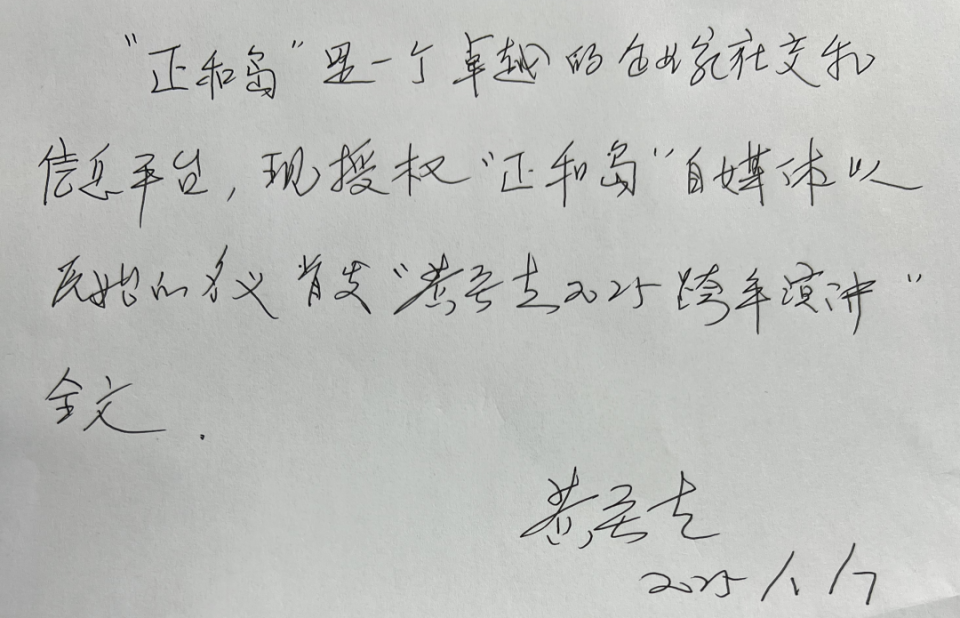 “正和岛”是一个卓越的企业家社交和
信息平台,现授权“正和岛”自媒体以
原始的名义首发“黄2025跨年演讲”
全文.
黄
2025/1/7